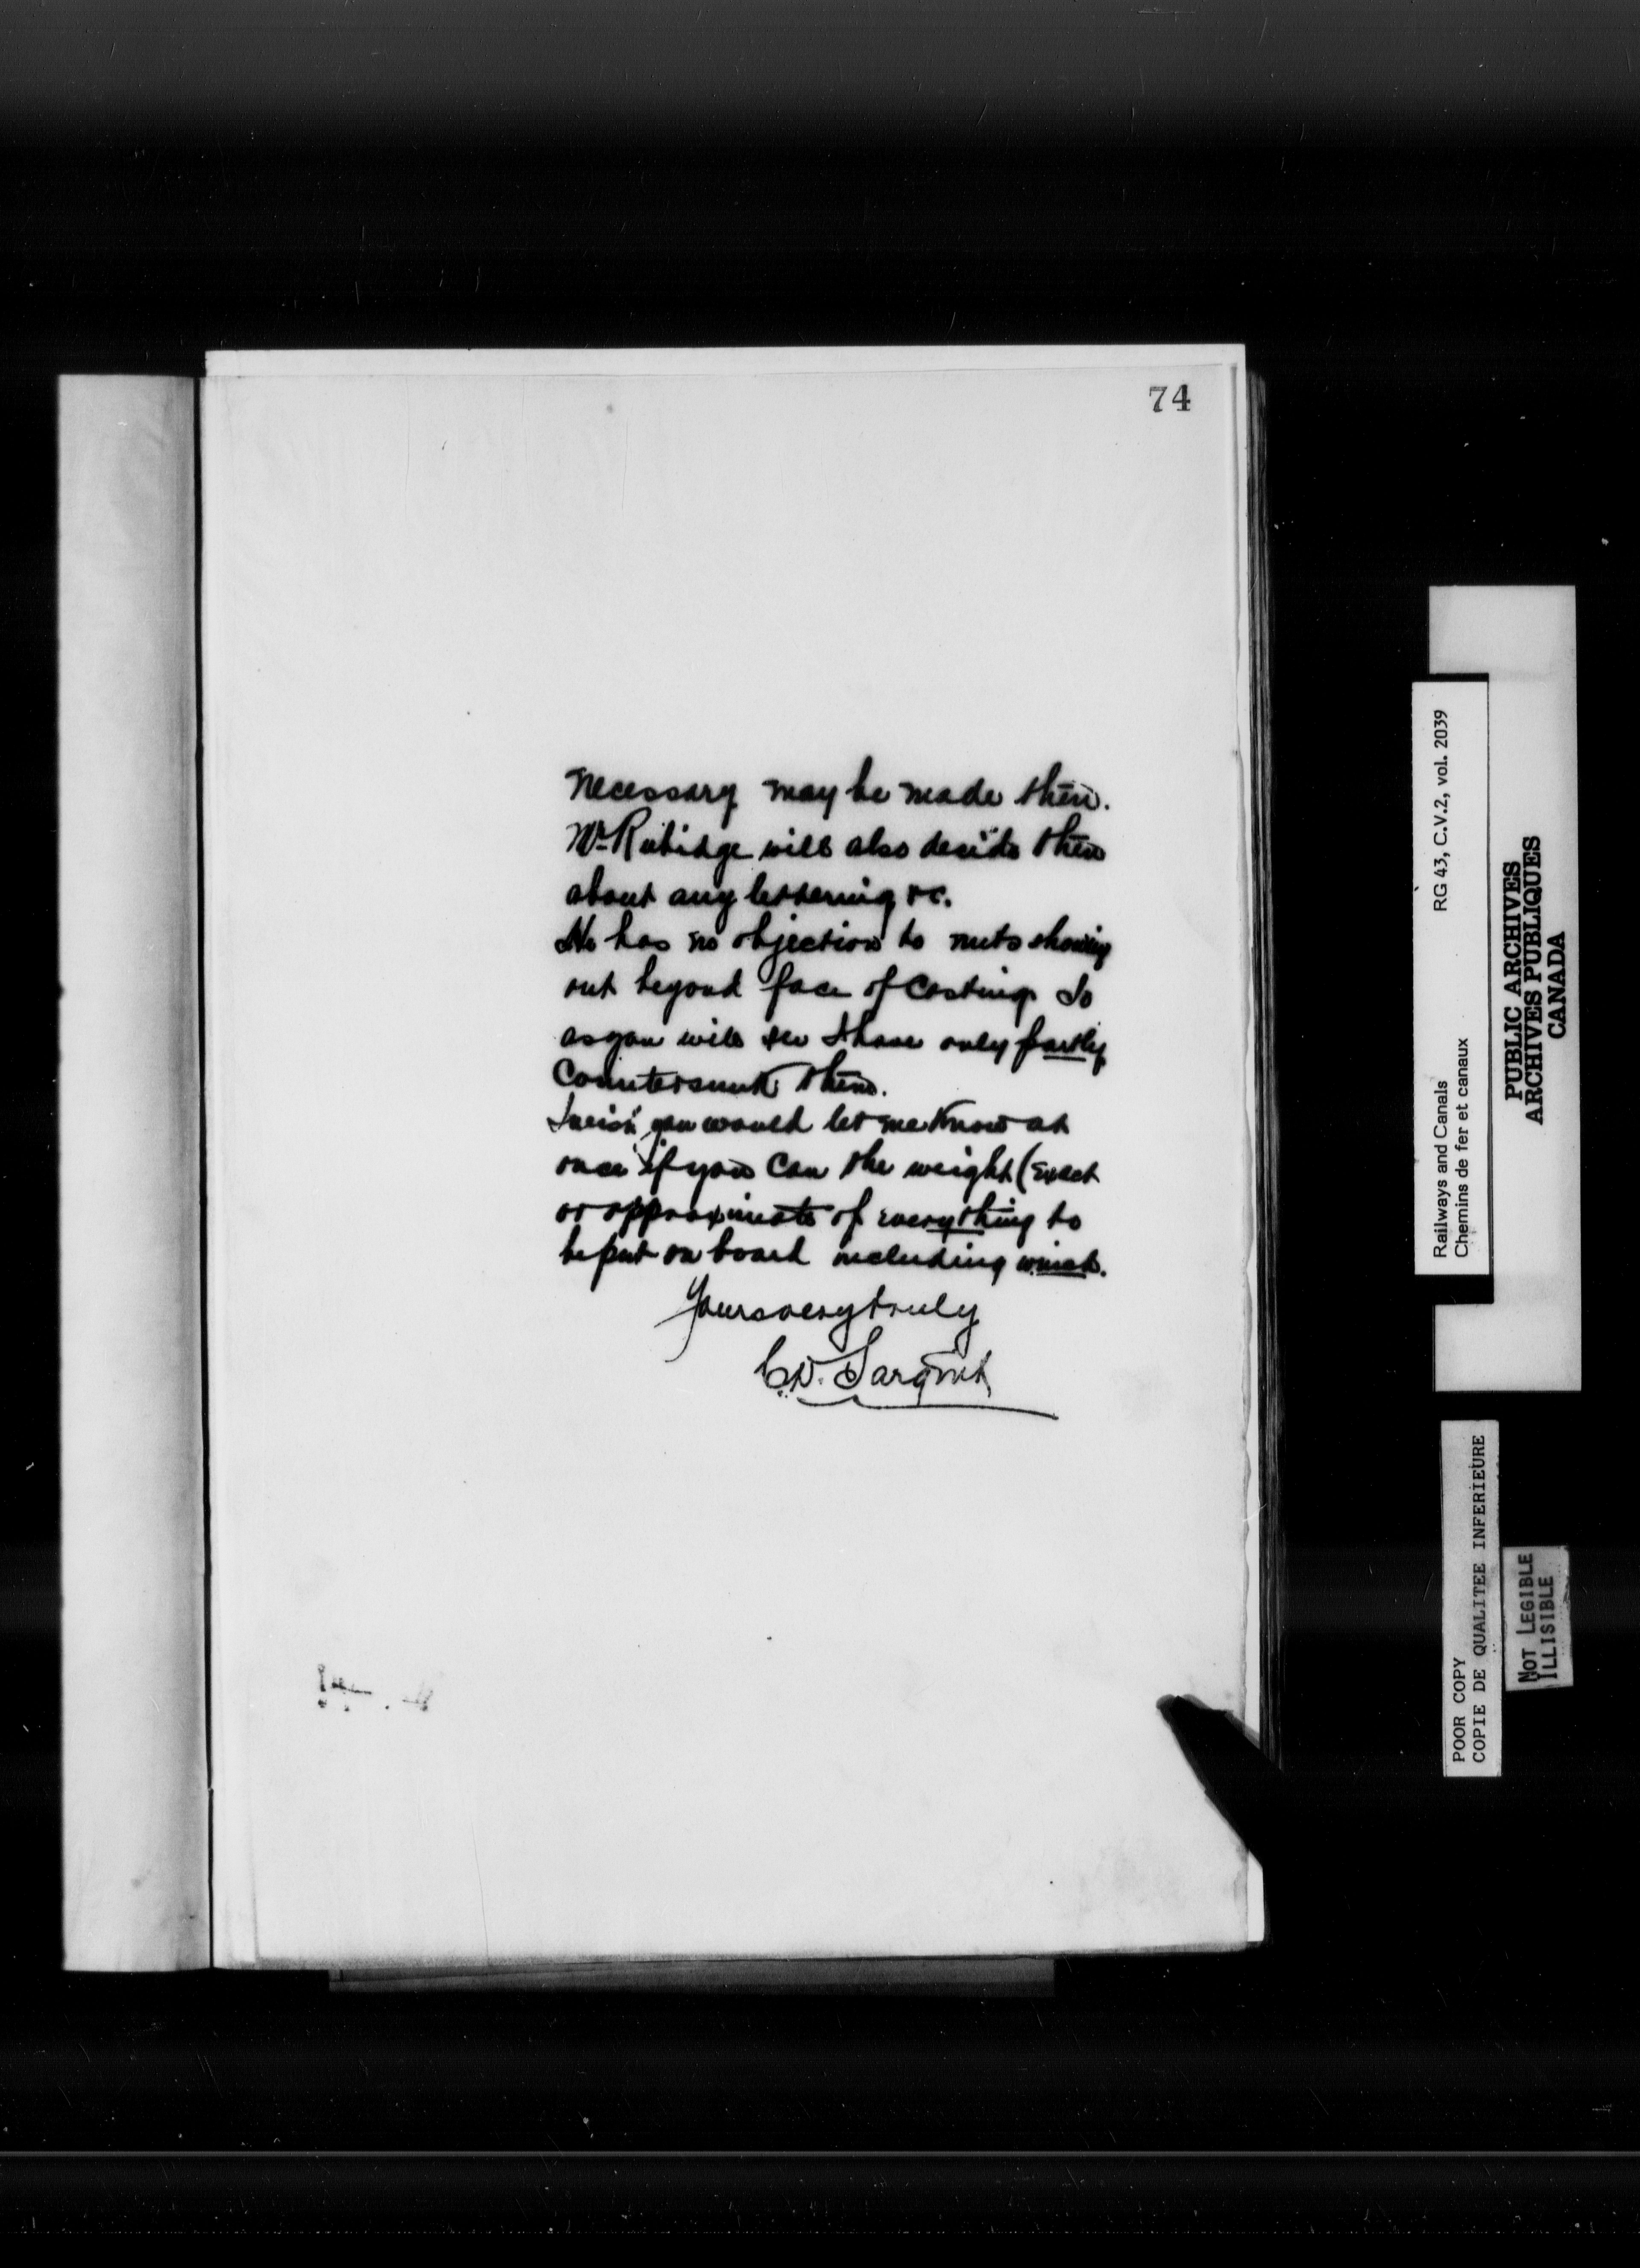 74
necessary may be made then.
Mr Rubidge will also decide then
about any lettering &c.
He has no objection to nuts showing
out beyond face of casting. So
as you will see I have only partly
Countersunk them.
I wish you would let me know at
once if you can the weight (exact
or approximate of everything to
be put on board including winch.
Yours very truly
C.D. Sargent
RG 43, C.V.2, vol. 2039
Railways and Canals
Chemins de fer et canaux
PUBLIC ARCHIVES
ARCHIVES PUBLIQUES
CANADA
POOR COPY
COPIE DE QUALITEE INFERIEURE
NOT LEGIBLE
ILLISIBLE